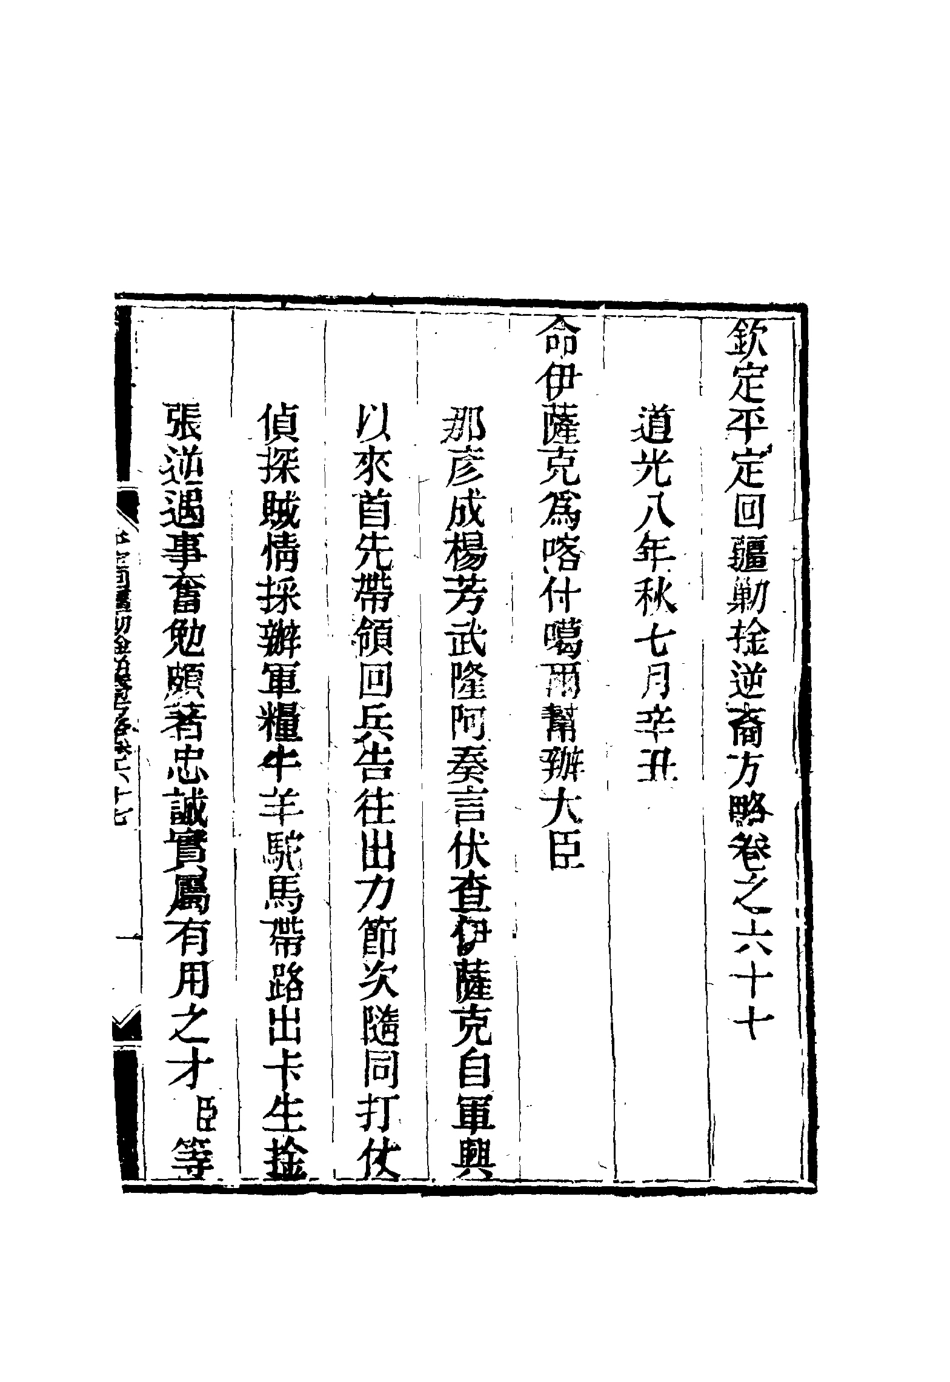 欽定平定回疆剿捦逆裔方略卷之六十七
道光八年秋七月辛丑
命伊薩克爲喀什噶爾幫辦大臣
那彥成楊芳武隆阿奏言伏查伊薩克自軍興
以來首先帶領回兵告往出力節次隨同打仗
偵探賊情採辦軍糧牛羊駝馬帶路出卡生捦
張逆遇事奮勉頗著忠誠實屬有用之才臣等
平定回疆剿捦逆裔方略卷六十七 一